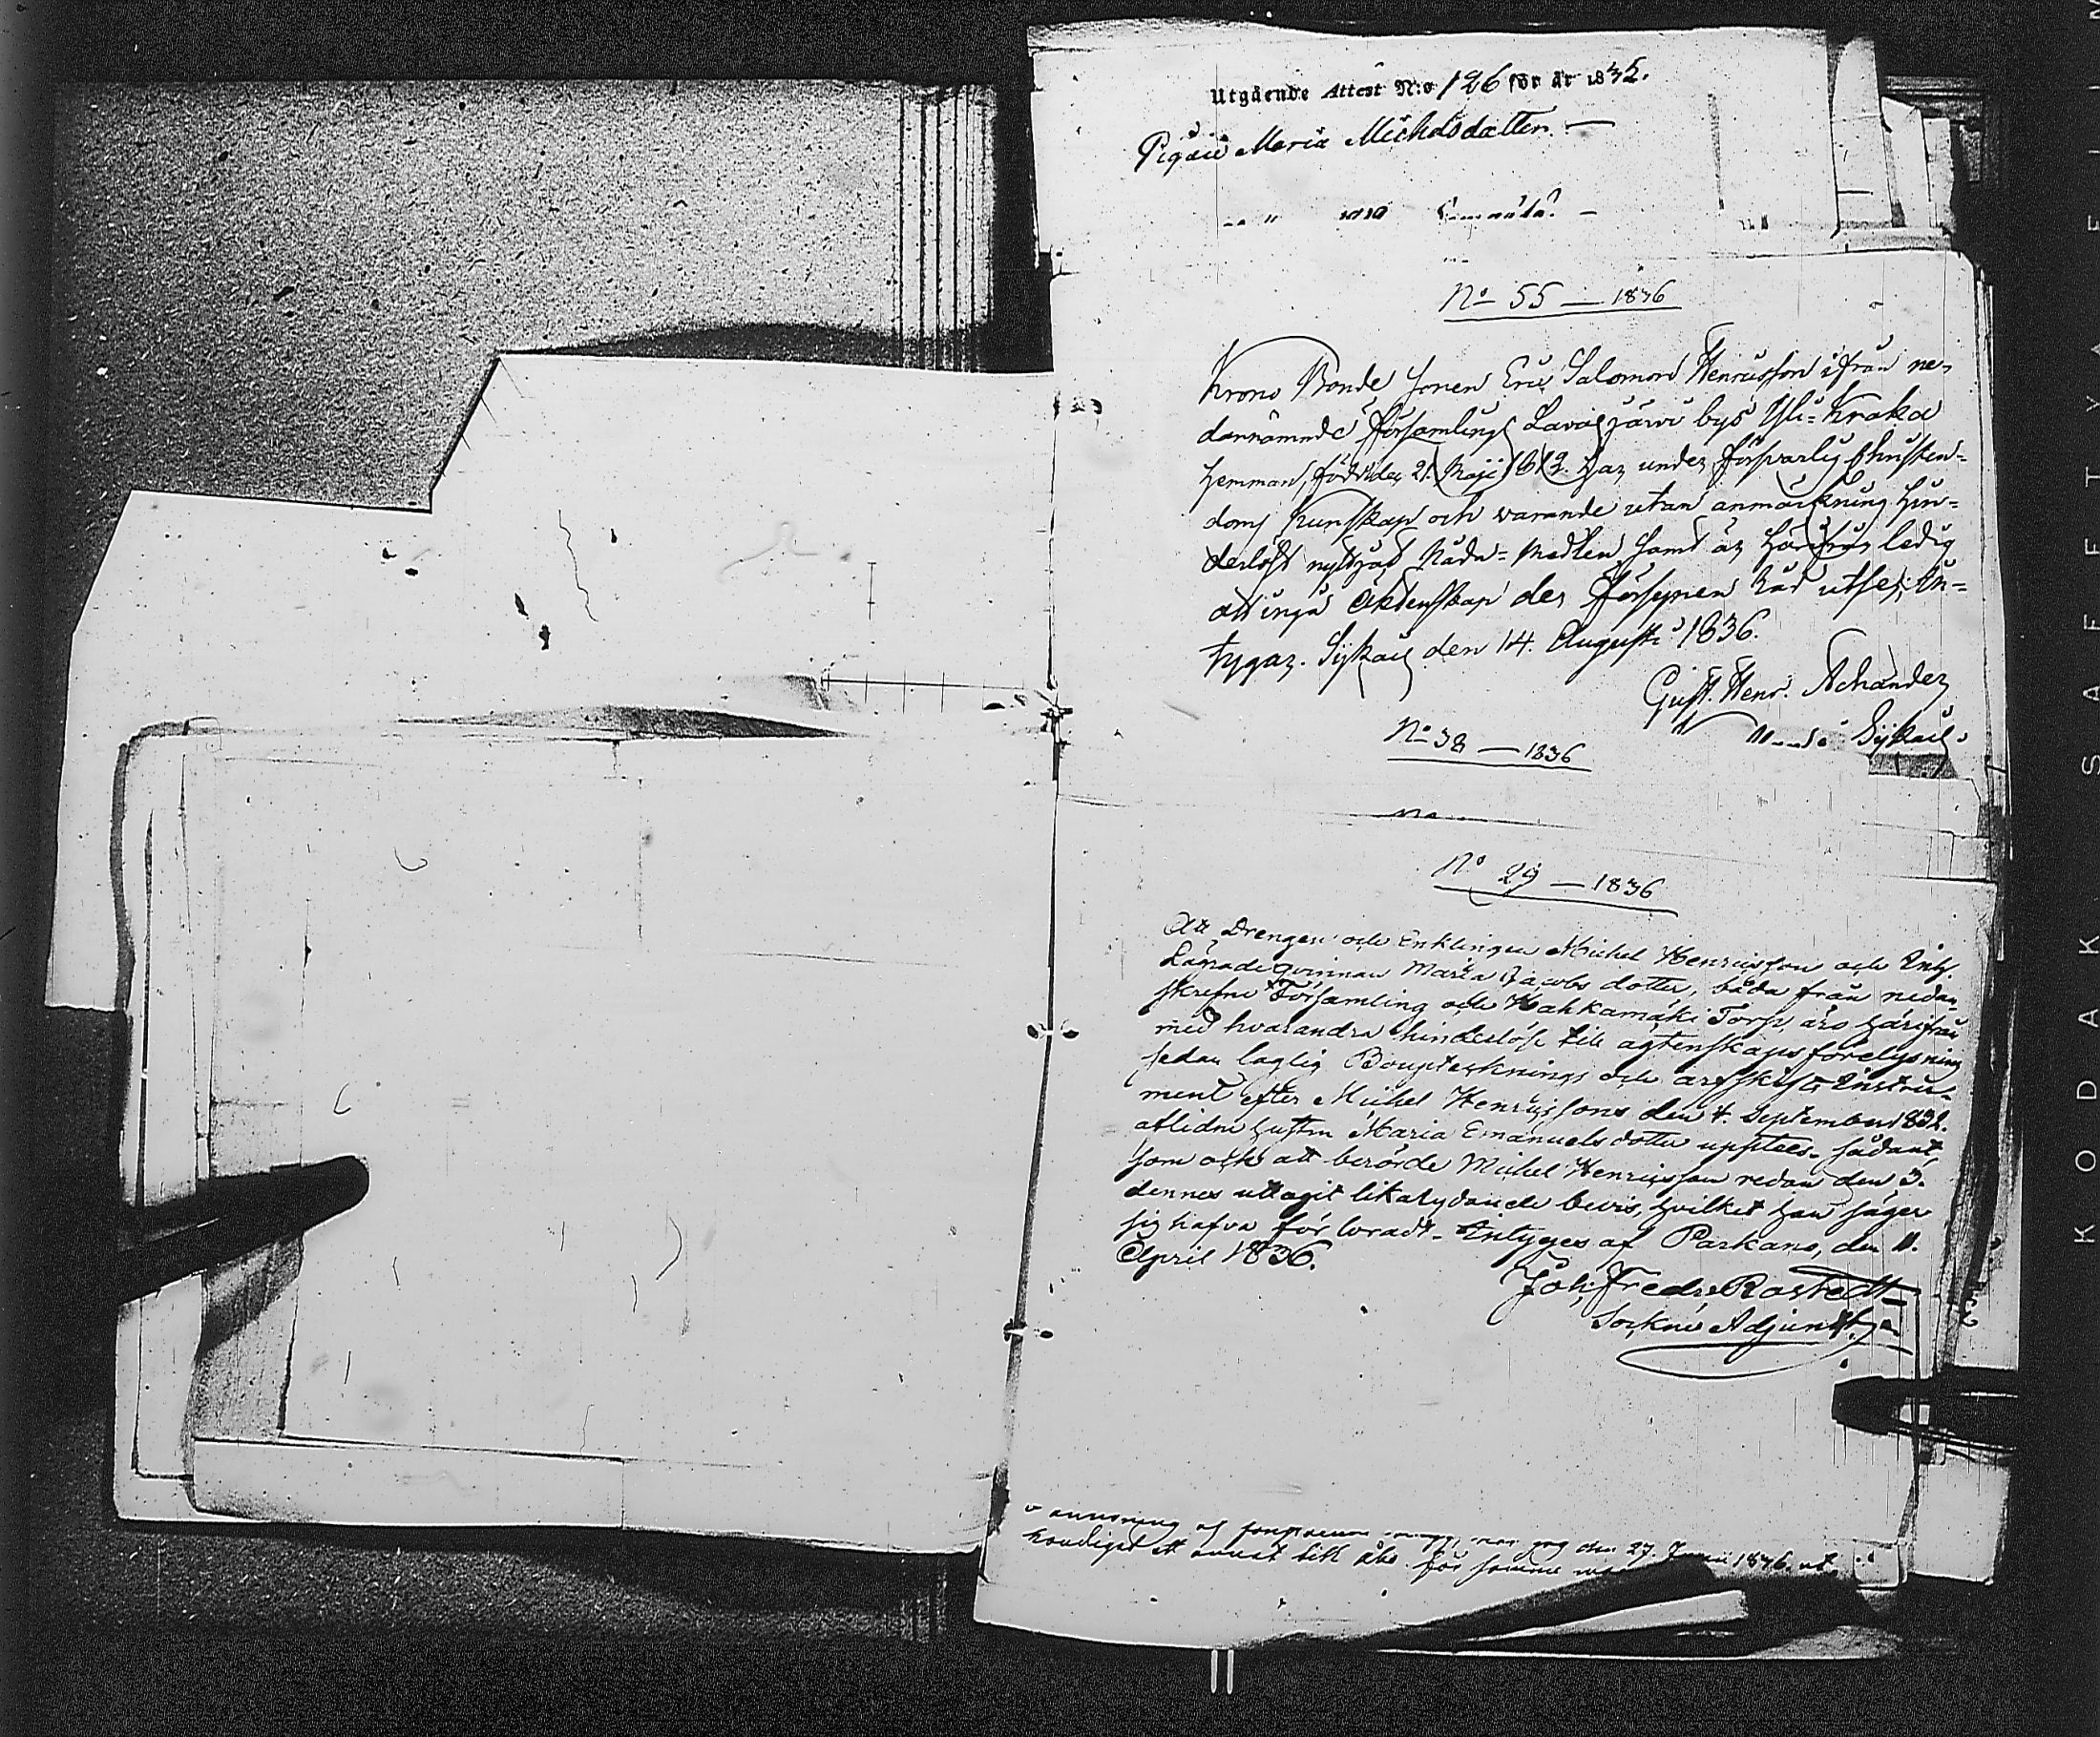 Utgående Attest N:o 126 för år 1835.
Pigan Maria Michelsdotter. —
No 55 — 1836
Krono Bonde Sonen Eric Salomon Henricsson ifrån ne-
dannämnde Församlings Lavasjärvi bys Yli-Kraka
Hemman, född den 21. Maji 1812. Har under försvarlig Christen-
doms Kunskap och varande utan anmärkning hin-
derlöst nyttjat Nåde-Medlen samt är härifrån ledig
att ingå Äktenskap der Försynen kan utse; In-
tygar. Sykais den 14. Augusti 1836.
Gust. Henr. Achander
Sykais.
No 38 — 1836
No 29 — 1836
Att Drengen och Enklingen Michel Henricsson och Inh.
qvinnan Maria Jacobs dotter, båda från nedan-
skrefne Församling och Kahkamäki Torp, äro härifrån
med hvarandra hinderlöse till ägtenskaps förelysning
sedan laglig Bouptecknings och arfskifts Instru-
ment efter Michel Henricssons den 4. September 1832.
aflidne hustru Maria Emanuels dotter upptees. sådant
som ock att berörde Michel Henricsson redan den 3.
dennes uttagit likalydande bevis, hvilket han säger
sig hafva förloradt. Intyges af Parkano, den 11.
April 1836.
Joh. Fredr. Rostedt
Sockne Adjunkt.
anvisning af jag den 27. Junii 1836. ut
ett annat till för samma
KODAK SAFETY